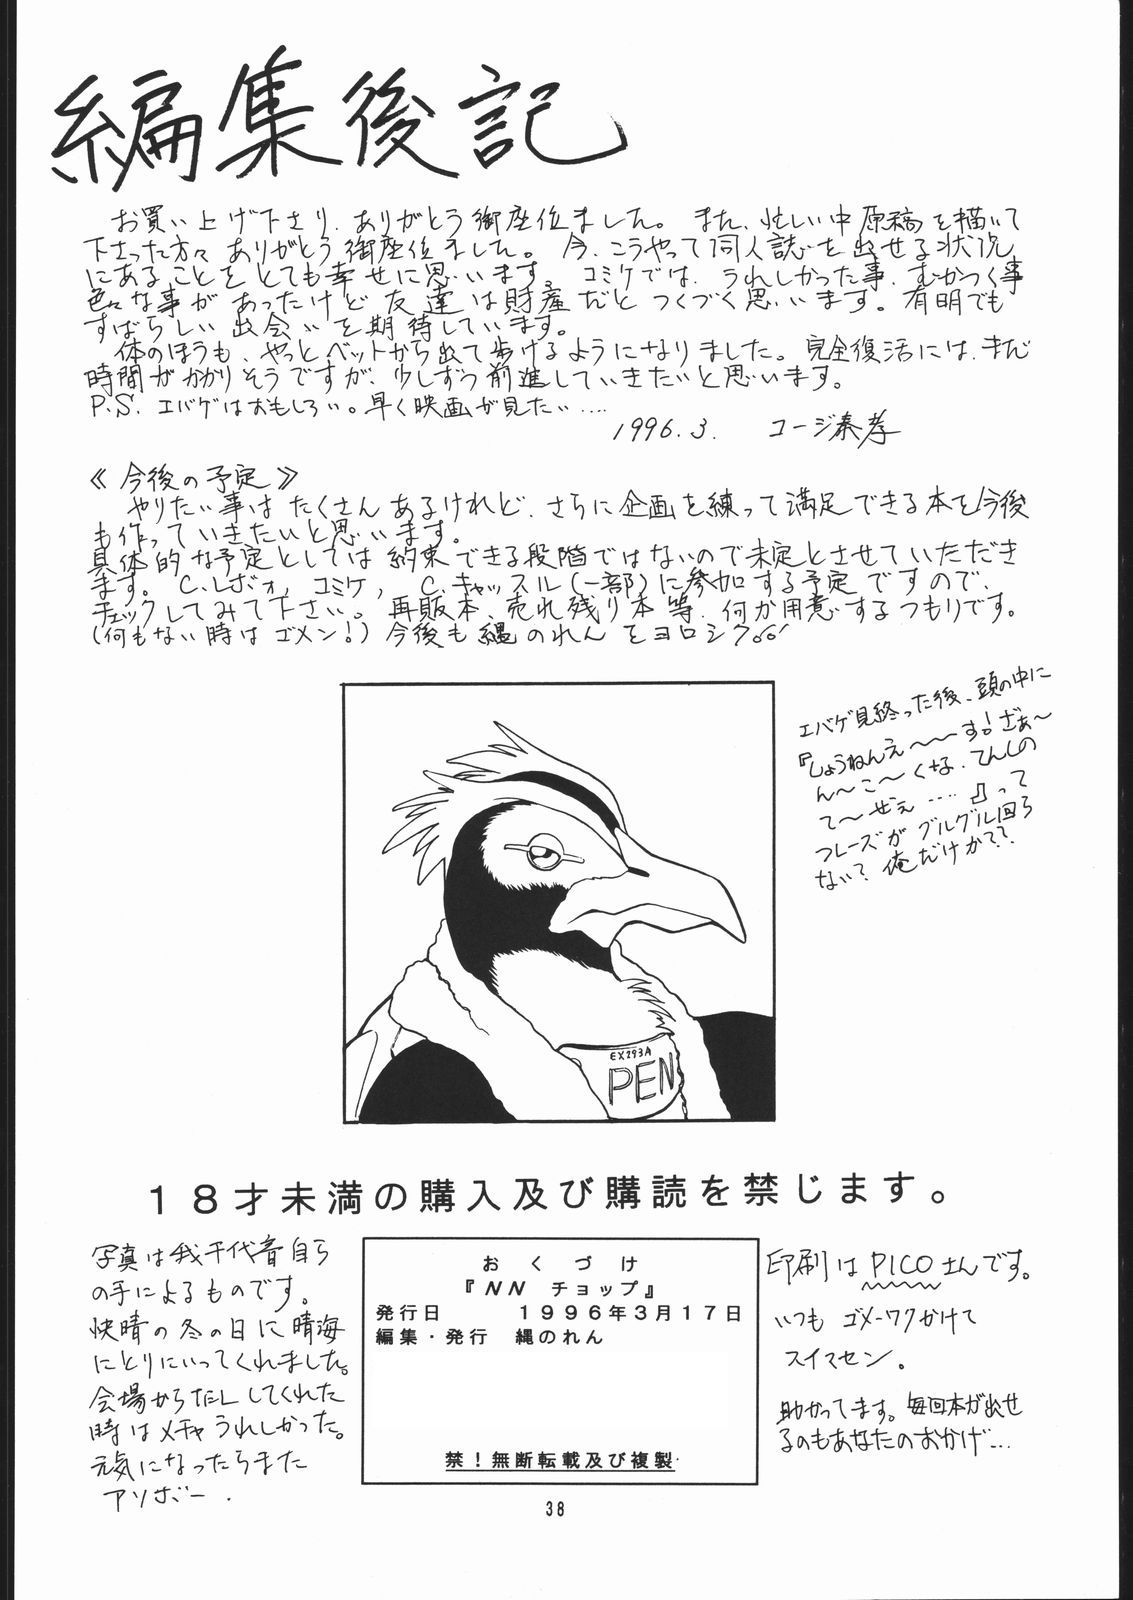 編集後記
お買い上げ下さり、ありがとう御座位ました。また、忙しい中原稿を描いて
下さった方々ありがとう御座位ました。今、こうやって同人誌を出せる状況
にあることをとても幸せに思います。コミケでは、うれしかった事、むかつく事
色々な事があったけど友達は財産だとつくづく思います。有明でも
すばらしい出会いを期待しています。
体のほうも、やっとベットから出て歩けるようになりました。完全復活には、まだ
時間がかかりそうですが、少しずつ前進していきたいと思います。
P.S. エバゲはおもしろい。早く映画が見たい....
1996.3. コージ泰孝
《今後の予定》
やりたい事はたくさんあるけれど、さらに企画を練って満足できる本を今後
も作っていきたいと思います。
具体的な予定としては約束できる段階ではないので未定とさせていただき
ます。C.レボォ,コミケ, C.キャッスル(一部)に参加する予定ですので、
チェックしてみて下さい。再販本、売れ残り本等、何か用意するつもりです。
(何もない時はゴメン!)今後も縄のれんをヨロシク。
エバゲ見終った後、頭の中に
『しょうねんえ〜〜〜す!ざぁ〜
ん〜こ〜くな、てんしの
て〜ぜぇ....』って
フレーズがグルグル回ら
ない?俺だけか??
EX293A
PEN
18才未満の購入及び購読を禁じます。
写真は我千代音自ら
の手によるものです。
快晴の冬の日に晴海
にとりにいってくれました。
会場からTELしてくれた
時はメチャうれしかった。
元気になったらまた
アソボー.
おくづけ
『NN チョップ』
発行日 1996年3月17日
編集・発行 縄のれん
禁!無断転載及び複製
印刷はPICOさんです。
いつもゴメーワクかけて
スイマセン。
助かってます。毎回本が出せ
るのもあなたのおかげ...
38